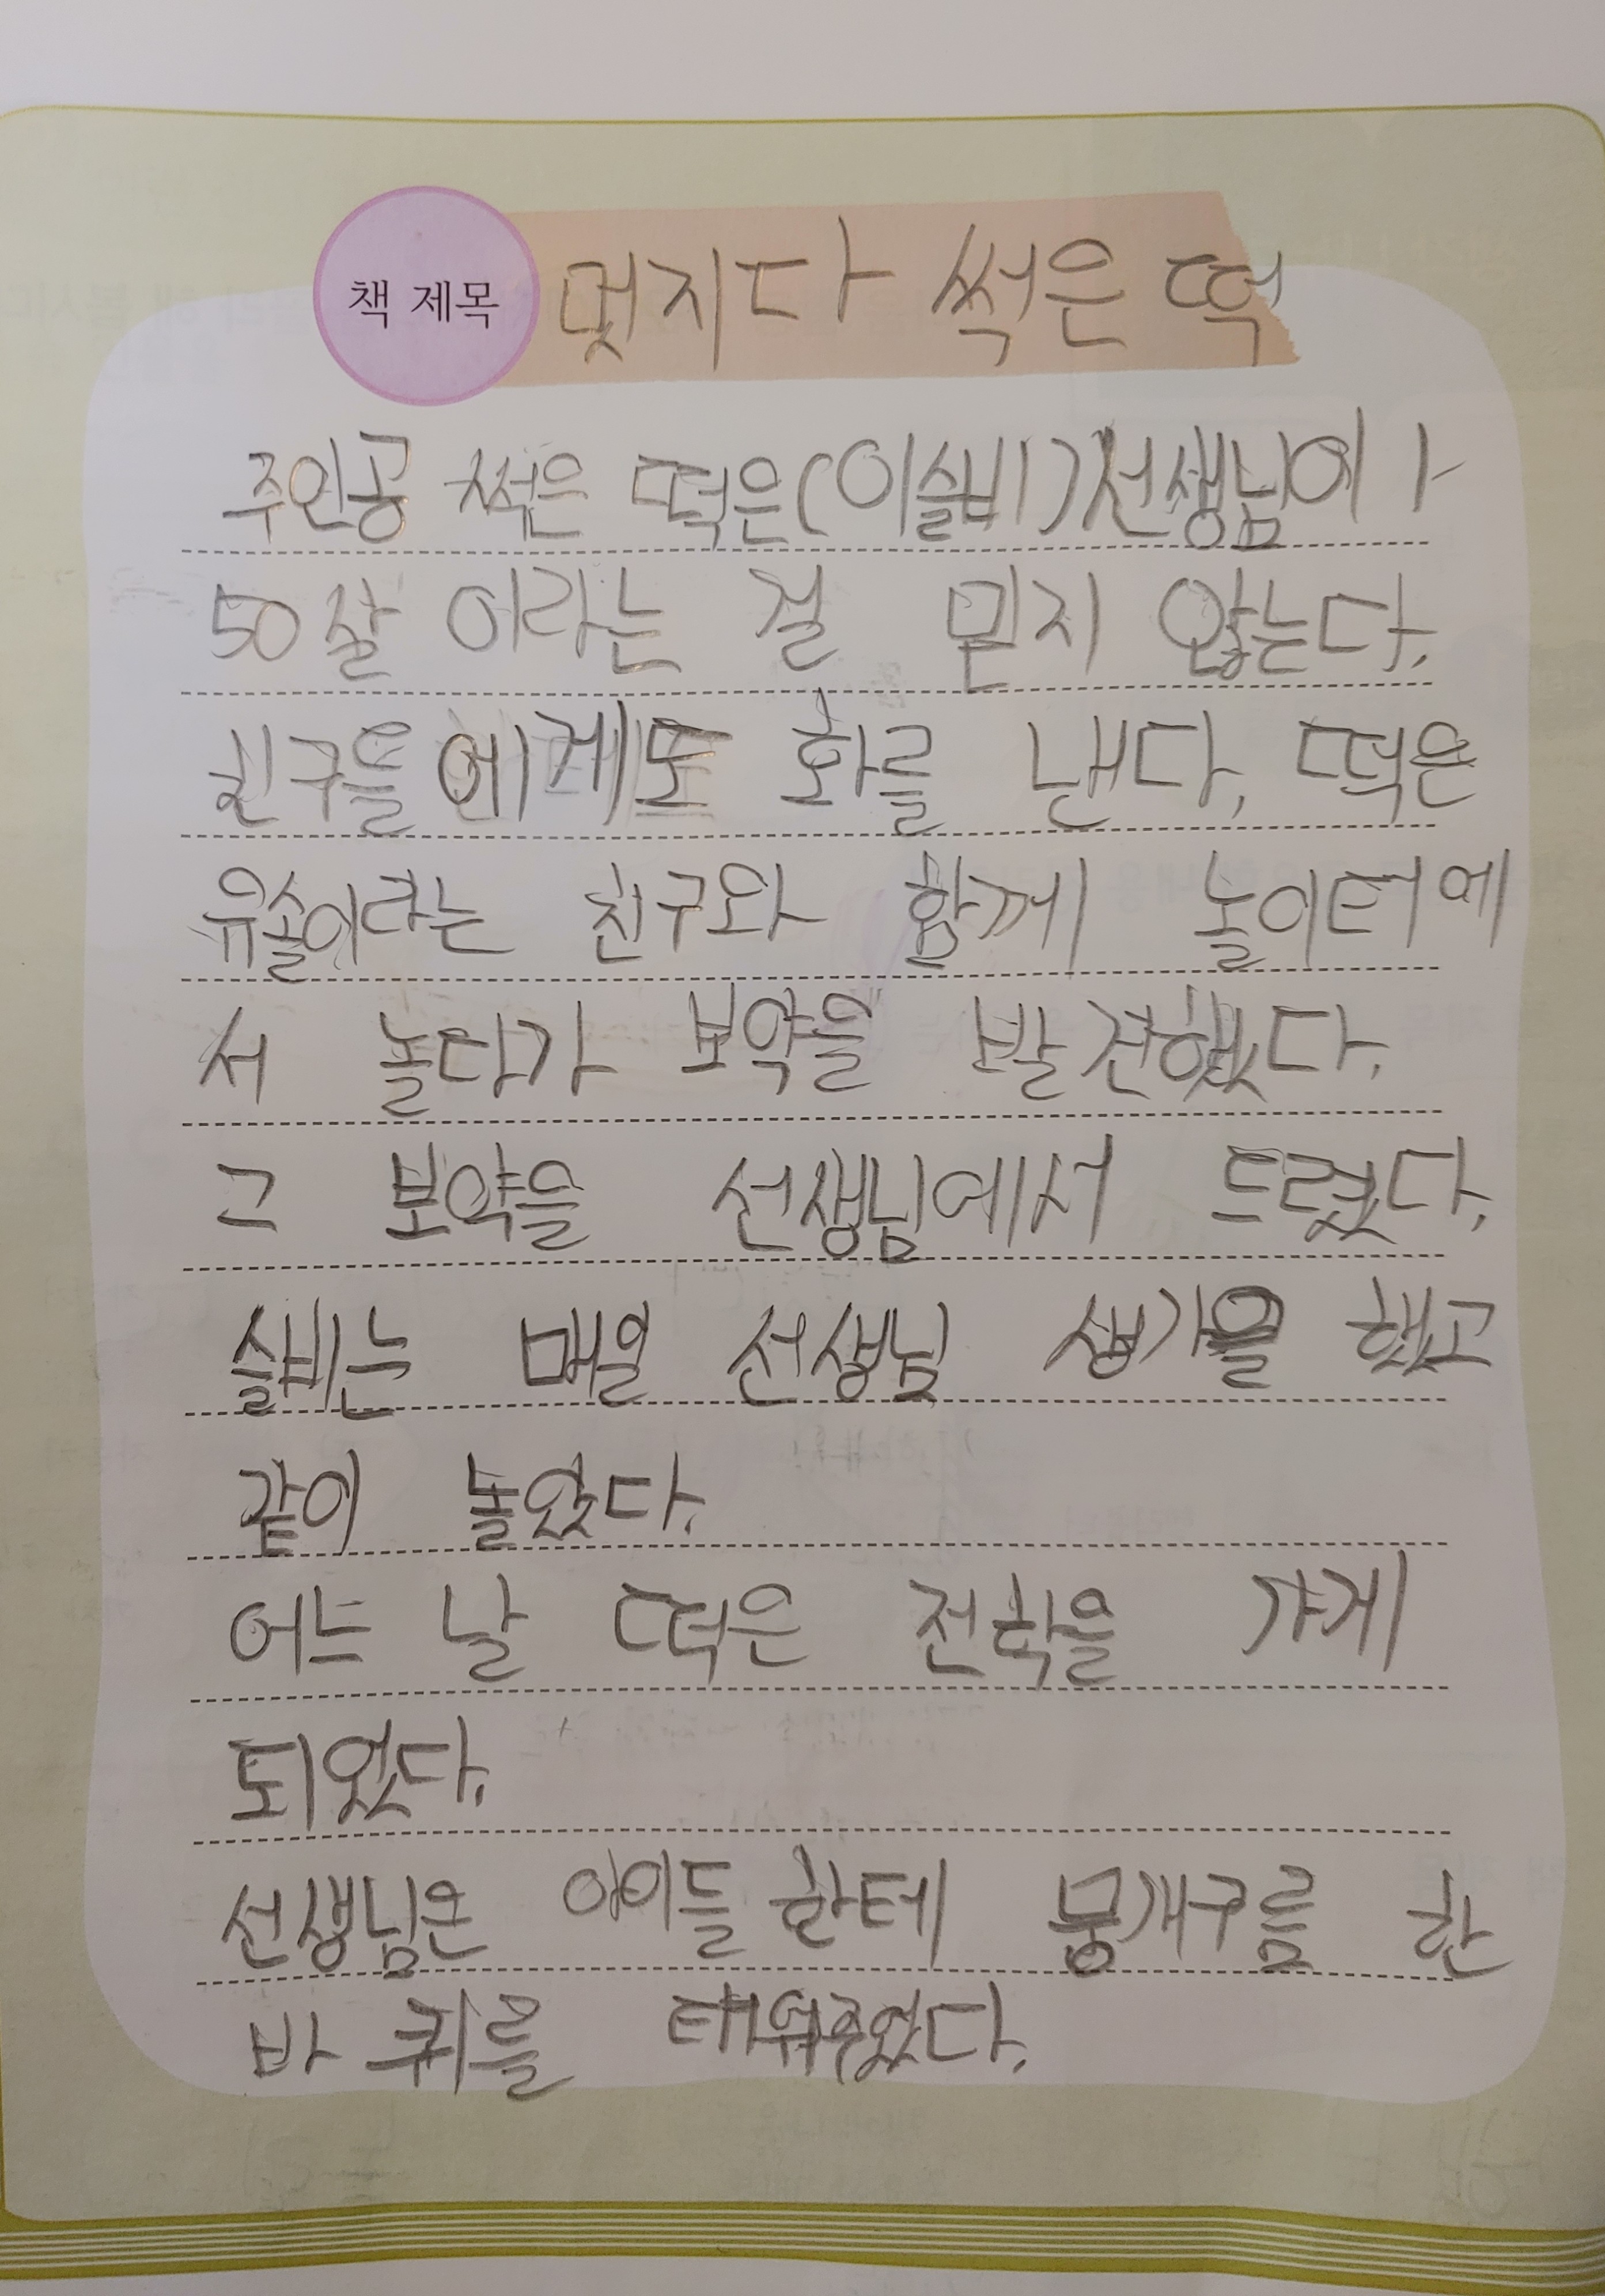 책 제목 멋지다 썩은 떡
주인공 썩은 떡은(이슬비)선생님이
50살 이라는 걸 믿지 않는다.
친구들에게도 화를 낸다. 떡은
유솔이라는 친구와 함께 놀이터에
서 놀다가 보약을 발견했다.
그 보약을 선생님에서 드렸다.
슬비는 매일 선생님 생가을 했고
같이 놀았다.
어느 날 떡은 전학을 가게
되었다.
선생님은 아이들 한테 뭉개구름 한
바퀴를 태워주었다.